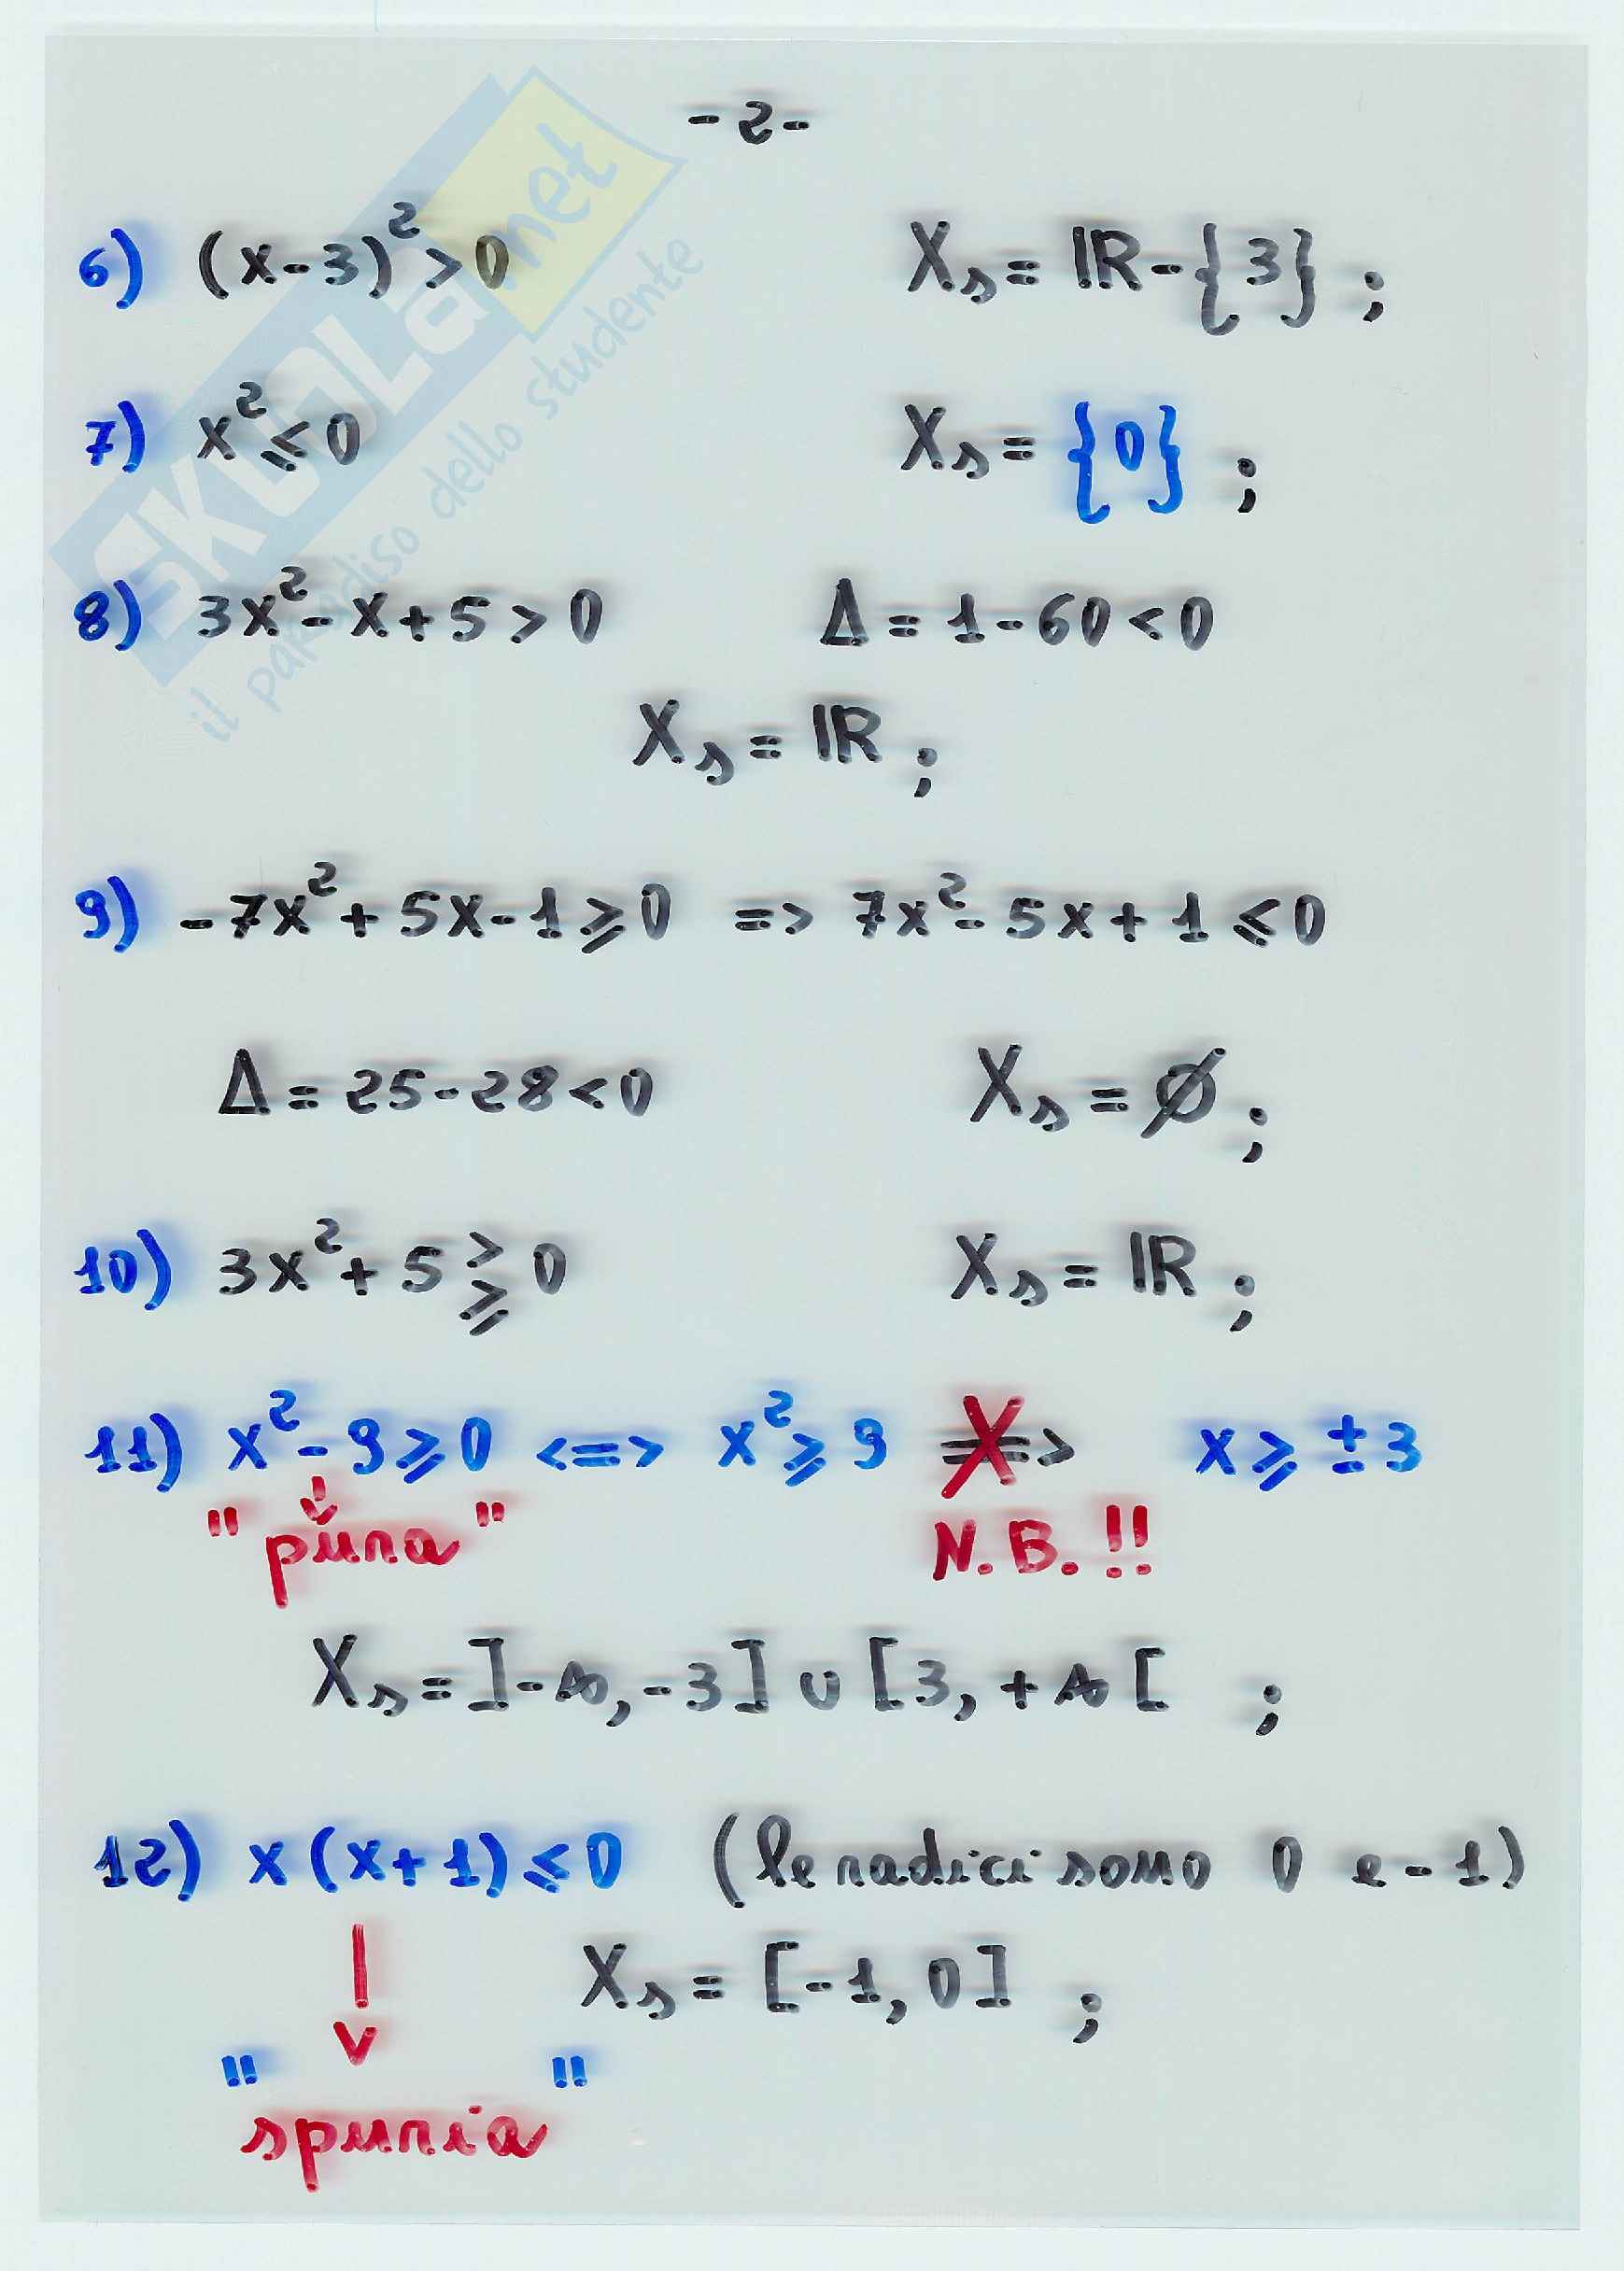 -2-
6) (x-3)² > 0 Xs = IR - {3} ;
7) x² ≤ 0 Xs = {0} ;
8) 3x² - x + 5 > 0 Δ = 1 - 60 < 0
Xs = IR ;
9) -7x² + 5x - 1 ≥ 0 => 7x² - 5x + 1 ≤ 0
Δ = 25 - 28 < 0 Xs = ∅ ;
10) 3x² + 5 > ≥ 0 Xs = IR ;
11) x² - 9 ≥ 0 <=> x² ≥ 9 => x ≥ ± 3
"pura" N.B. !!
Xs = ]-∞, -3] ∪ [3, +∞[ ;
12) x(x+1) ≤ 0 (le radici sono 0 e -1)
Xs = [-1, 0] ;
"spuria"
SKUOLA.net
il paradiso dello studente